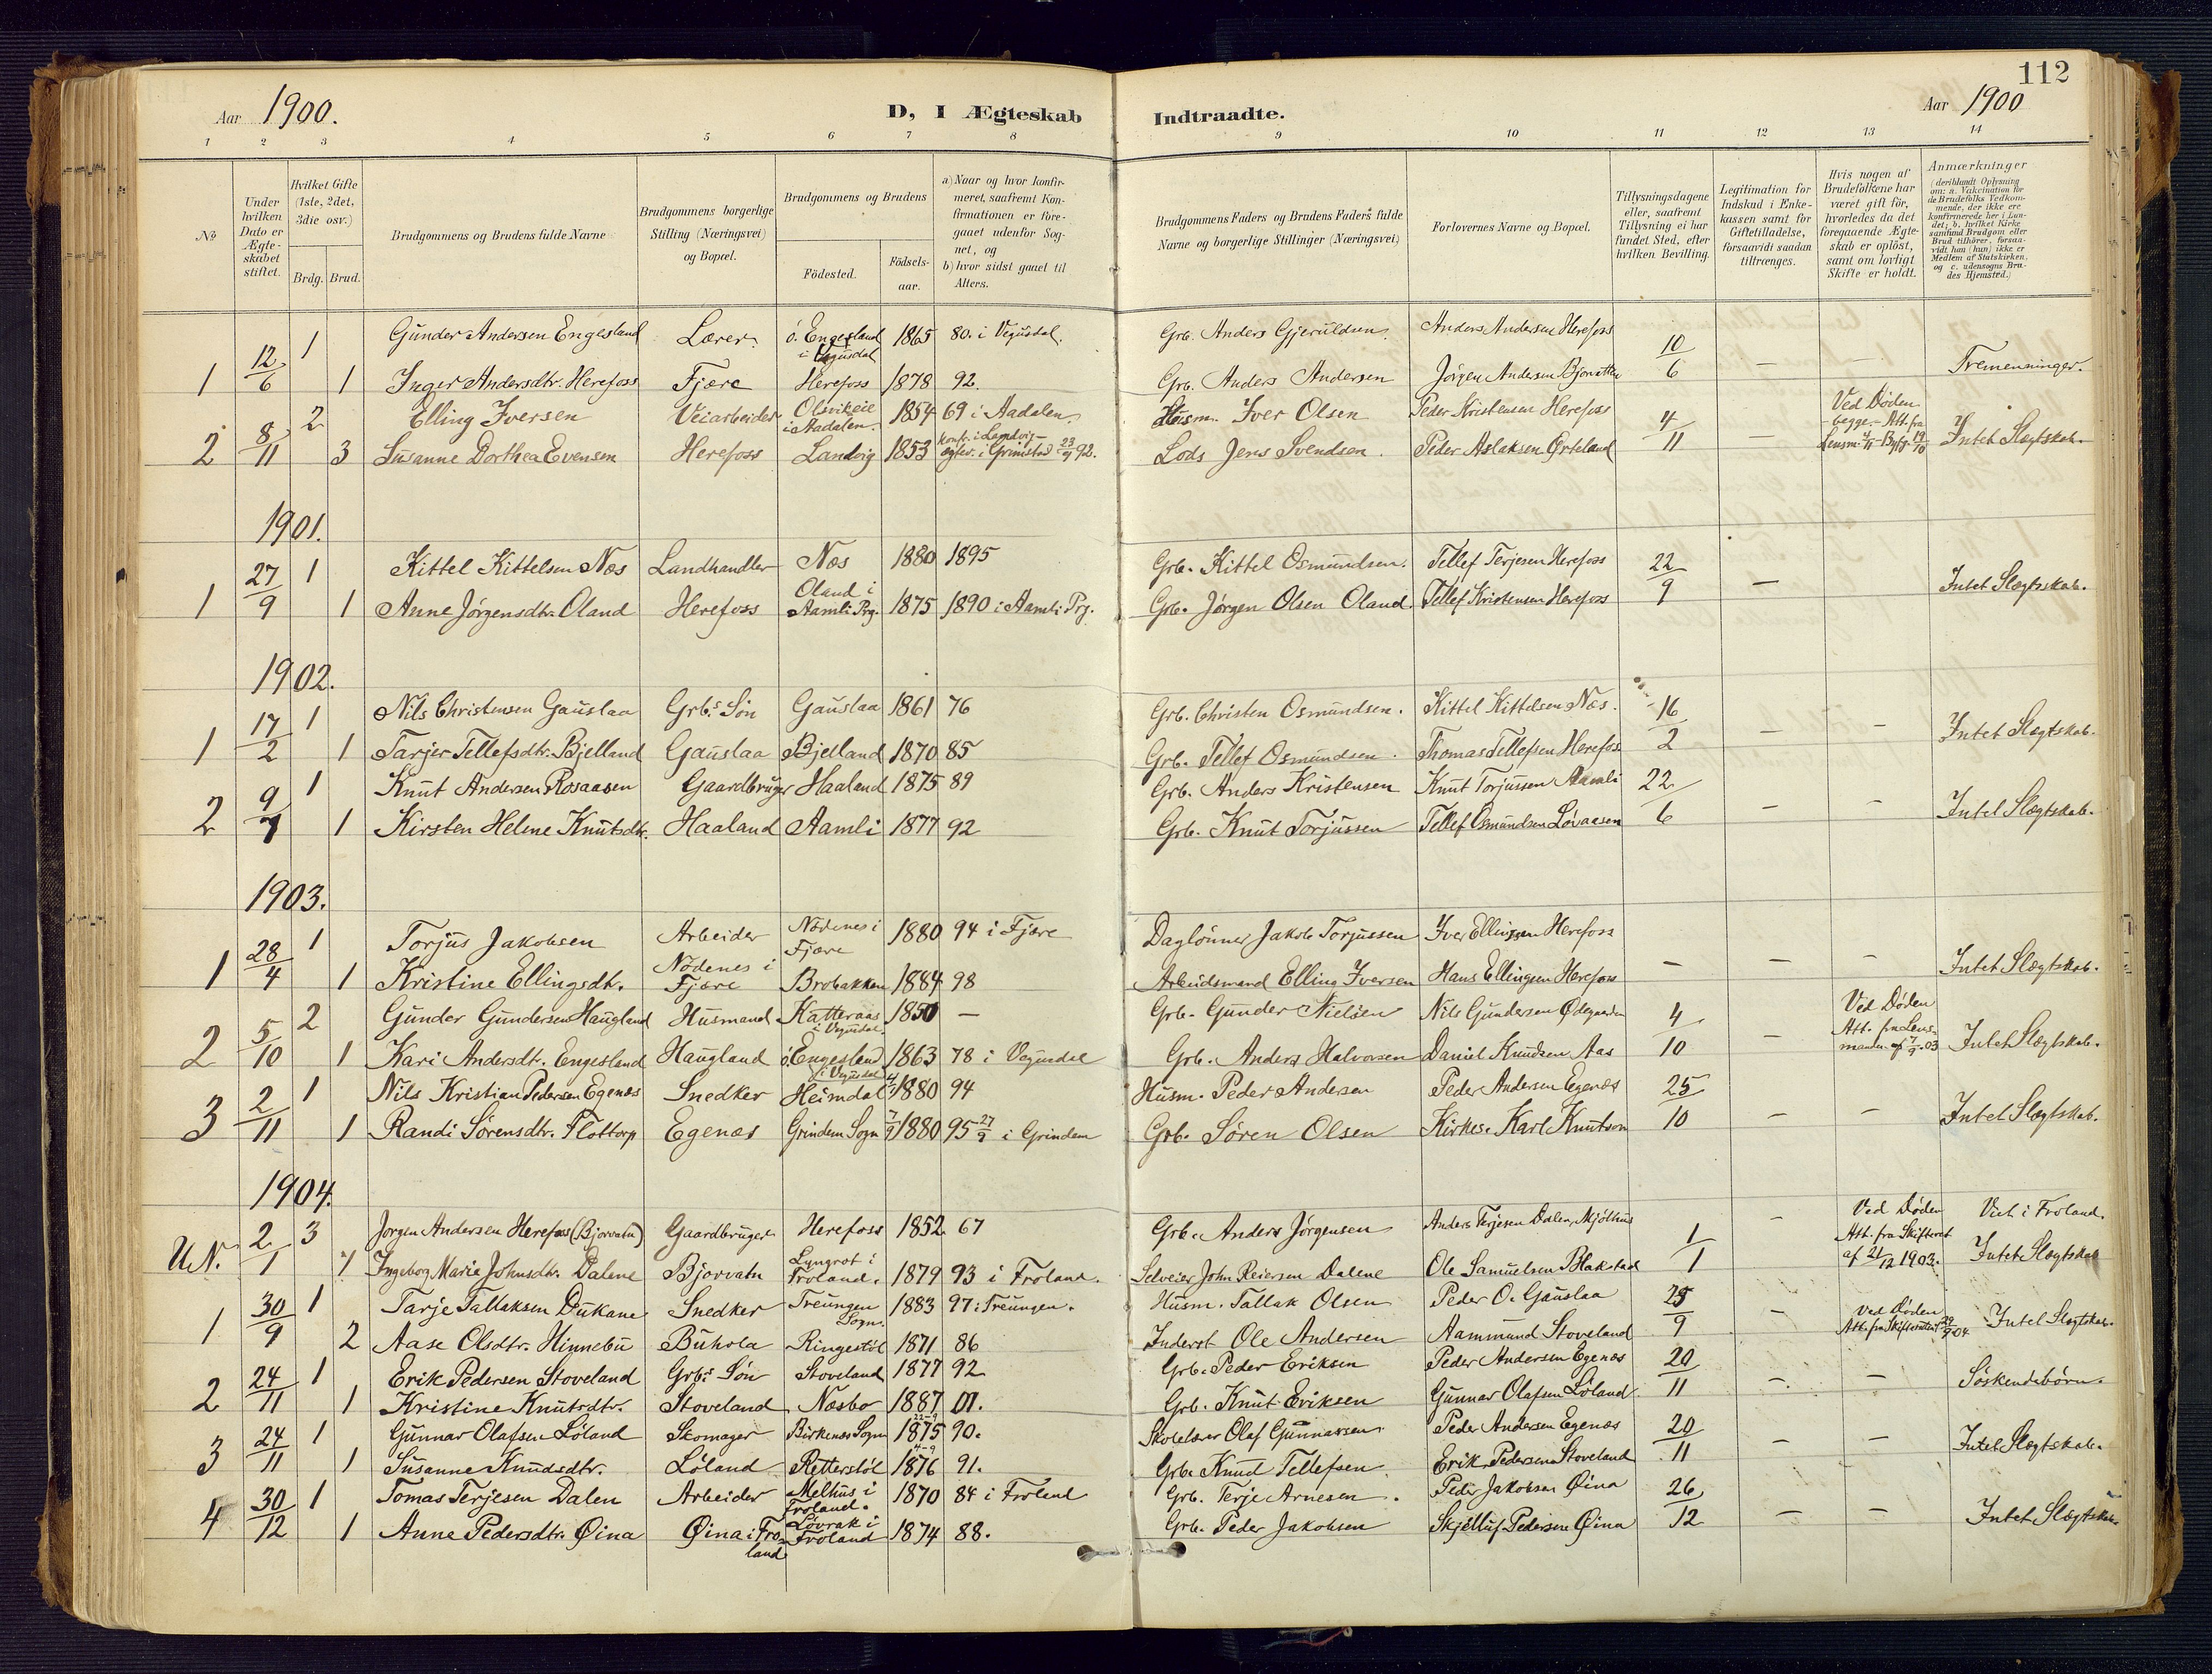 112
Aar 1900.
D, I Ægteskab Indtraadte.
Aar 1900
1 2 3 4 5 6 7 8 9 10 11 12 13 14
No
Under hvilken Dato er Ægte-skabet stiftet.
Hvilket Gifte (1ste, 2det, 3die osv.)
Brdg. Brud.
Brudgommens og Brudens fulde Navne
Brudgommens borgerlige Stilling (Næringsvei) og Bopæl.
Brudgommens og Brudens
Födested.
Födsels-aar.
a) Naar og hvor konfir-meret, saafremt Kon-firmationen er fore-gaaet udenfor Sog-net, og
b) hvor sidst gaaet til Alters.
Brudgommens Faders og Brudens Faders fulde Navne og borgerlige Stillinger (Næringsvei)
Forlovernes Navne og Bopæl.
Tillysningsdagene eller, saafremt Tillysning ei har fundet Sted, efter hvilken Bevilling.
Legitimation for Indskud i Enke-kassen samt for Giftetilladelse, forsaavidt saadan tiltrænges.
Hvis nogen af Brudefolkene har været gift för, hvorledes da det foregaaende Ægte-skab er oplöst, samt om lovligt Skifte er holdt.
Anmærkninger
(deriblandt Oplysning om: a. Vakcination for de Brudefolks Vedkom-mende, der ikke ere konfirmerede her i Lan-det; b. hvilket Kirke-samfund Brudgom eller Brud tilhörer, forsaa-vidt han (hun) ikke er Medlem af Statskirken, og c. udensogns Bru-des Hjemsted.)
1 12/6 1 Gunder Andersen Engesland Lærer. ö. Engesland i Vegusdal 1865 80. i Vegusdal. Grb. Anders Gjeruldsen. Anders Andersen Herefoss 10/6
1 Inger Andersdtr. Herefoss Fjære Herefoss 1878 92. Grb. Anders Andersen Jörgen Andersen Bjorvatten — — Tremenninger.
2 8/11 2 Elling Iversen Veiarbeider Olsvikeie i Aadalen. 1854 69 i Aadalen. Husm. Iver Olsen Peder Kristensen Herefoss 4/11 Ved Döden begge. - Att. fra
3 Susanne Dorthea Evensen Herefoss Landvig 1853 konf. i Landvig - i Grimstad 23/9 92. Lods Jens Svendsen. Peder Aslaksen Örteland — Intet Slægtskab.
1901.
1 27/9 1 Kittel Kittelsen Næs Landhandler Næs 1880 1895 Grb. Kittel Osmundsen. Tellef Terjesen Herefoss 22/9
1 Anne Jörgensdtr. Oland Herefoss Oland i Aamli Prg. 1875 1890 i Aamli Prg. Grb. Jörgen Olsen Oland. Tellef Kristensen Herefoss — Intet Slægtskab.
1902.
1 17/2 1 Nils Christensen Gauslaa Grb.s Sön Gauslaa 1861 76 Grb. Christen Osmundsen. Kittel Kittelsen Næs. 16/2
1 Tarjer Tellefsdtr. Bjelland Gauslaa Bjelland 1870 85 Grb. Tellef Osmundsen. Thomas Tellefsen Herefos — — Intet Slægtskab.
2 9/7 1 Knut Andersen Rosaasen Gaardbruger Haaland 1875 89 Grb. Anders Kristensen Knut Torjussen Aamli 22/6
1 Kirsten Helene Knutsdtr. Haaland Aamli 1877 92 Grb. Knut Torjussen Tellef Osmundsen Lövaasen — — Intet Slægtskab.
1903.
1 28/4 1 Torjus Jakobsen Arbeider Nödenes i Fjære 1880 94 i Fjære Daglönner Jakob Torjussen Iver Ellingsen Herefoss
1 Kristine Ellingsdtr. Nödenes i Fjære Brobakken 1884 98 Arbeidsmand Elling Iversen Hans Ellingsen Herefoss — — — Intet Slægtskab.
2 5/10 2 Gunder Gundersen Haugland Husmand Katteraas i Vegusdal. 1850 — Grb. Gunder Nielsen Nils Gundersen Ödegaarden 4/10 Ved Döden Att. fra Lens-manden af 7/9 03
1 Kari Andersdtr. Engesland Haugland ö. Engesland i Vegusdal 1863 78 i Vegusdal Grb. Anders Halvorsen Daniel Knudsen Aas — Intet Slægtskab.
3 2/11 1 Nils Kristian Pedersen Egenæs Snedker Heimdal 1880 94 Husm. Peder Andersen Peder Andersen Egenæs 25/10
1 Randi Sörensdtr. Flottorp Egenæs Grindem Sogn 7/9 1880 95 27/9 i Grindem Grb. Sören Olsen Kirkes. Karl Knutson — — Intet Slægtskab.
1904.
U.N. 2/1 3 Jörgen Andersen Herefoss (Bjorvatn) Gaardbruger Herefoss 1852 67 Grb. Anders Jörgensen Anders Terjesen Dalen, Mjölhus 1/1 — Ved Döden Att. fra Skifteret af 21/12 1903. Viet i Froland.
1 Ingeborg Marie Johnsdtr. Dalene Bjorvatn Lyngrot i Froland. 1879 93 i Froland. Selveier John Reiersen Dalene Ole Samuelsen Blakstad Intet Slægtskab
1 30/9 1 Tarje Tallaksen Dukane Snedker Treungen Sogn. 1883 97 i Treungen. Husm. Tallak Olsen Peder O. Gauslaa 25/9 — Ved Döden Att. fra Skifteretten 29/9 04.
2 Aase Olsdtr. Hinnebu Buhola Ringestöl 1871 86 Inderst Ole Andersen Aammund Stoveland Intet Slægtskab.
2 24/11 1 Erik Pedersen Stoveland Grb.s Sön Stoveland 1877 92 Grb. Peder Eriksen Peder Andersen Egenæs 20/11
1 Kristine Knutsdtr. Stoveland Næsbo 1887 01. Grb. Knut Eriksen Gunnar Olafsen Löland — — Söskendebörn.
3 24/11 1 Gunnar Olafsen Löland Skomager Birkenæs Sogn 22-9 1875 90. Skolelærer Olaf Gunnarsen Peder Andersen Egenæs 20/11
1 Susanne Knudsdtr. Löland Retterstöl 4-9 1876 91. Grb. Knud Tellefsen. Erik Pedersen Stoveland — — Intet Slægtskab.
4 30/12 1 Tomas Terjesen Dalen Arbeider Melhus i Froland. 1870 84 i Froland Grb. Terje Arnesen. Peder Jakobsen Öina 26/12
1 Anne Pedersdtr. Öina Öina i Froland Lövrak i Froland 1874 88. Grb. Peder Jakobsen Skjelluf Pedersen Öina — — Intet Slægtskab